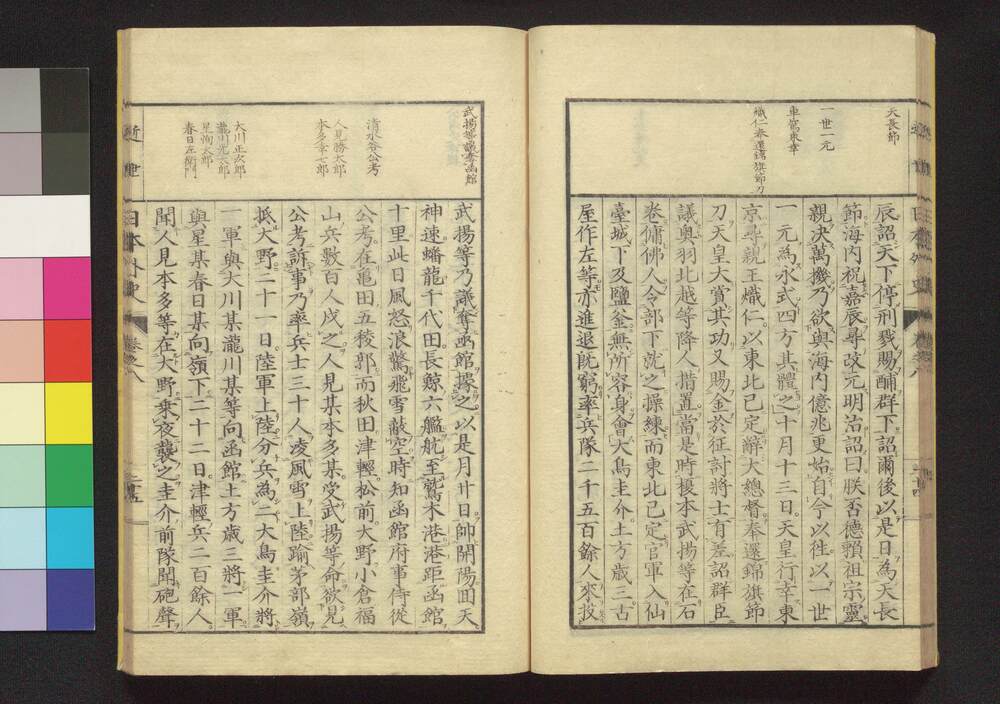 天長節
一世一元
車駕東幸
熾仁奉還錦旗節刀
辰詔天下停刑戮賜酺群下詔爾後以是日為天長
節海内祝嘉辰尋改元明治詔曰朕否德賴祖宗靈
親決萬機乃欲與海内億兆更始自今以往以一世
一元為永式四方其體之十月十三日天皇行幸東
京尋親王熾仁以東北已定辭大總督奉還錦旗節
刀天皇大賞其功又賜金於征討將士有差詔群臣
議奥羽北越等降人措置當是時榎本武揚等在石
卷傭佛人令部下就之操練而東北已定官軍入仙
臺城下及鹽釜無所容身會大鳥圭介土方歳三古
屋作左等亦進退既窮率兵隊二千五百餘人來投
近世日本外史 卷之八
武揚等議奪函館
清水谷公考
人見勝太郎
本多幸七郎
大川正次郎
瀧川充太郎
星恂太郎
春日左衛門
武揚等乃議奪函館據之以是月廿日帥開陽囬天
神速蟠龍千代田長鯨六艦航至鷲木港港距函館
十里此日風怒浪驚飛雪蔽空時知函館府事侍從
公考在亀田五稜郭而秋田津輕松前大野小倉福
山兵數百人戍之人見某本多某受武揚等命欲見
公考訴事乃率兵士三十人凌風雪上陸踰茅部嶺
抵大野二十一日陸軍上陸分兵為二大鳥圭介將
一軍與大川某瀧川某等向函館土方歳三將一軍
與星某春日某向嶺下二十二日津輕兵二百餘人
聞人見本多等在大野乘夜襲之圭介前隊聞砲聲
近世日本外史 卷之八